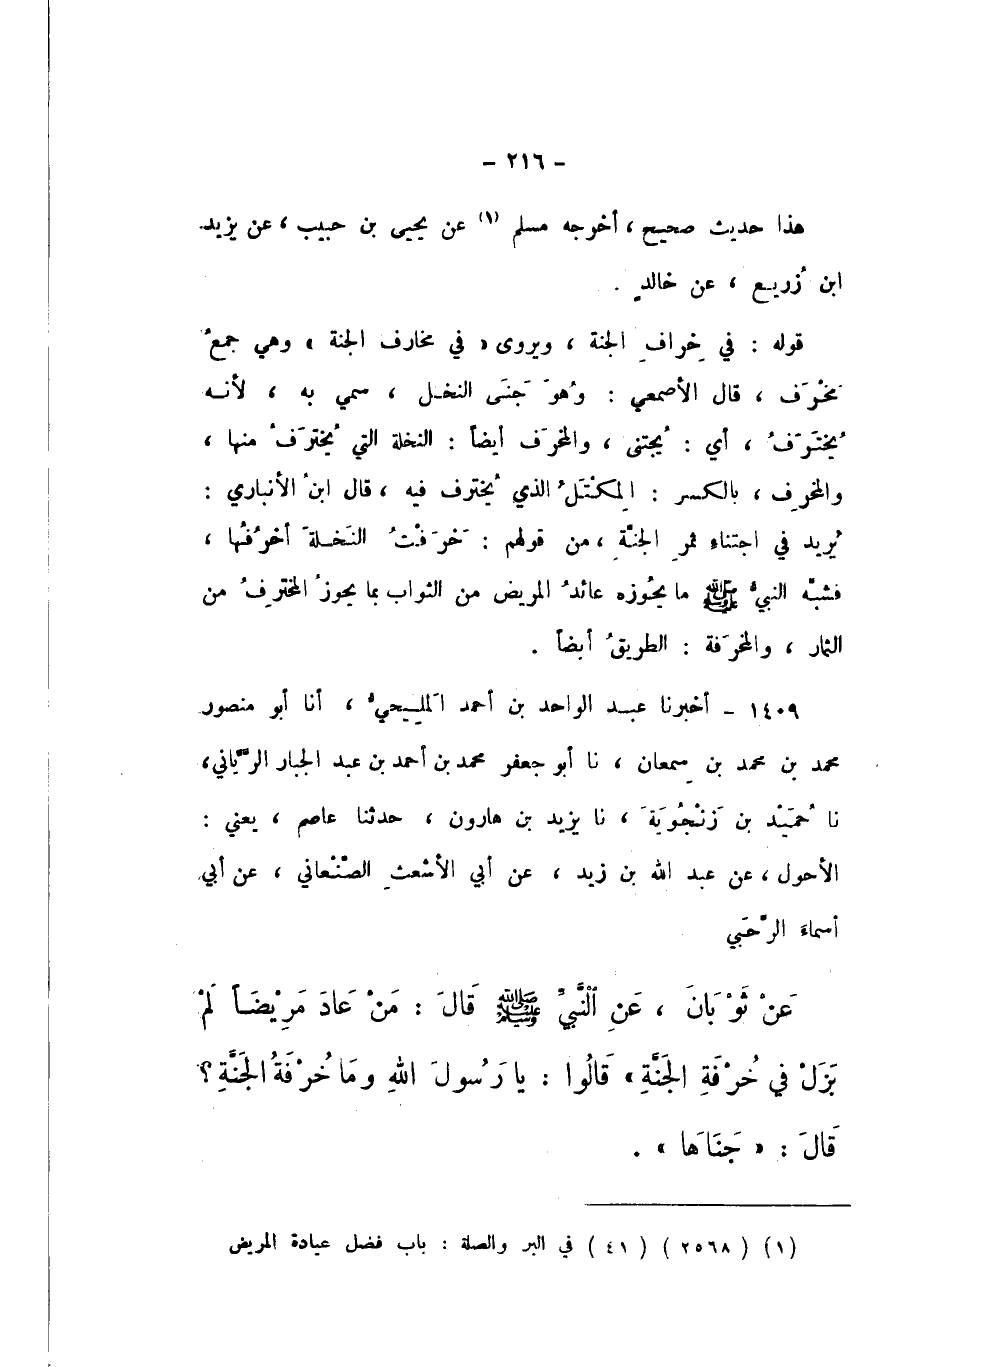 - ٢١٦ -
هذا حديث صحيح ، أخرجه مسلم (١) عن يحيى بن حبيب ، عن يزيد
ابن زُريع ، عن خالدٍ .
قوله : في خِرافِ الجنة ، ويروى « في مخارف الجنة » وهي جمعُ
مَخْرَف ، قال الأصمعي : وهُوَ جَنَى النخل ، سمي به ، لأنه
يُخْتَرَفُ ، أي : يُجتنى ، والمخرَف أيضاً : النخلة التي يُخْترَفُ منها ،
والمخرِف ، بالكسر : المِكْتَلُ الذي يُخترف فيه ، قال ابنُ الأنباري :
يُريد في اجتناءِ ثمرِ الجنَّةِ ، من قولهم : خَرَفْتُ النَخلةَ أخرُفُها ،
فشبَّه النبيُّ ﷺ ما يَحُوزه عائدُ المريض من الثواب بما يحوزُ المخترِفُ من
الثمار ، والمخرَفة : الطريقُ أيضاً .
١٤٠٩ - أخبرنا عبد الواحد بن أحمد المَلِيحيُّ ، أنا أبو منصور
محمد بن محمد بن سِمعان ، نا أبو جعفر محمد بن أحمد بن عبد الجبار الرَّيّاني ،
نا حُمَيْد بن زَنْجُويَةَ ، نا يزيد بن هارون ، حدثنا عاصم ، يعني :
الأحول ، عن عبد الله بن زيد ، عن أبي الأشعثِ الصَّنْعاني ، عن أبي
أسماءَ الرَّحَبي
عَنْ ثَوْبَانَ ، عَنِ ٱلنَّبِيِّ ﷺ قَالَ : مَنْ عَادَ مَرِيْضَاً لَمْ
يَزَلْ فِي خُرْفَةِ الجَنَّةِ » قَالُوا : يا رَسُولَ اللهِ ومَا خُرْفَةُ الجَنَّةِ ؟
قَالَ : « جَنَاهَا » .
(١) ( ٢٥٦٨ ) ( ٤١ ) في البر والصلة : باب فضل عيادة المريض